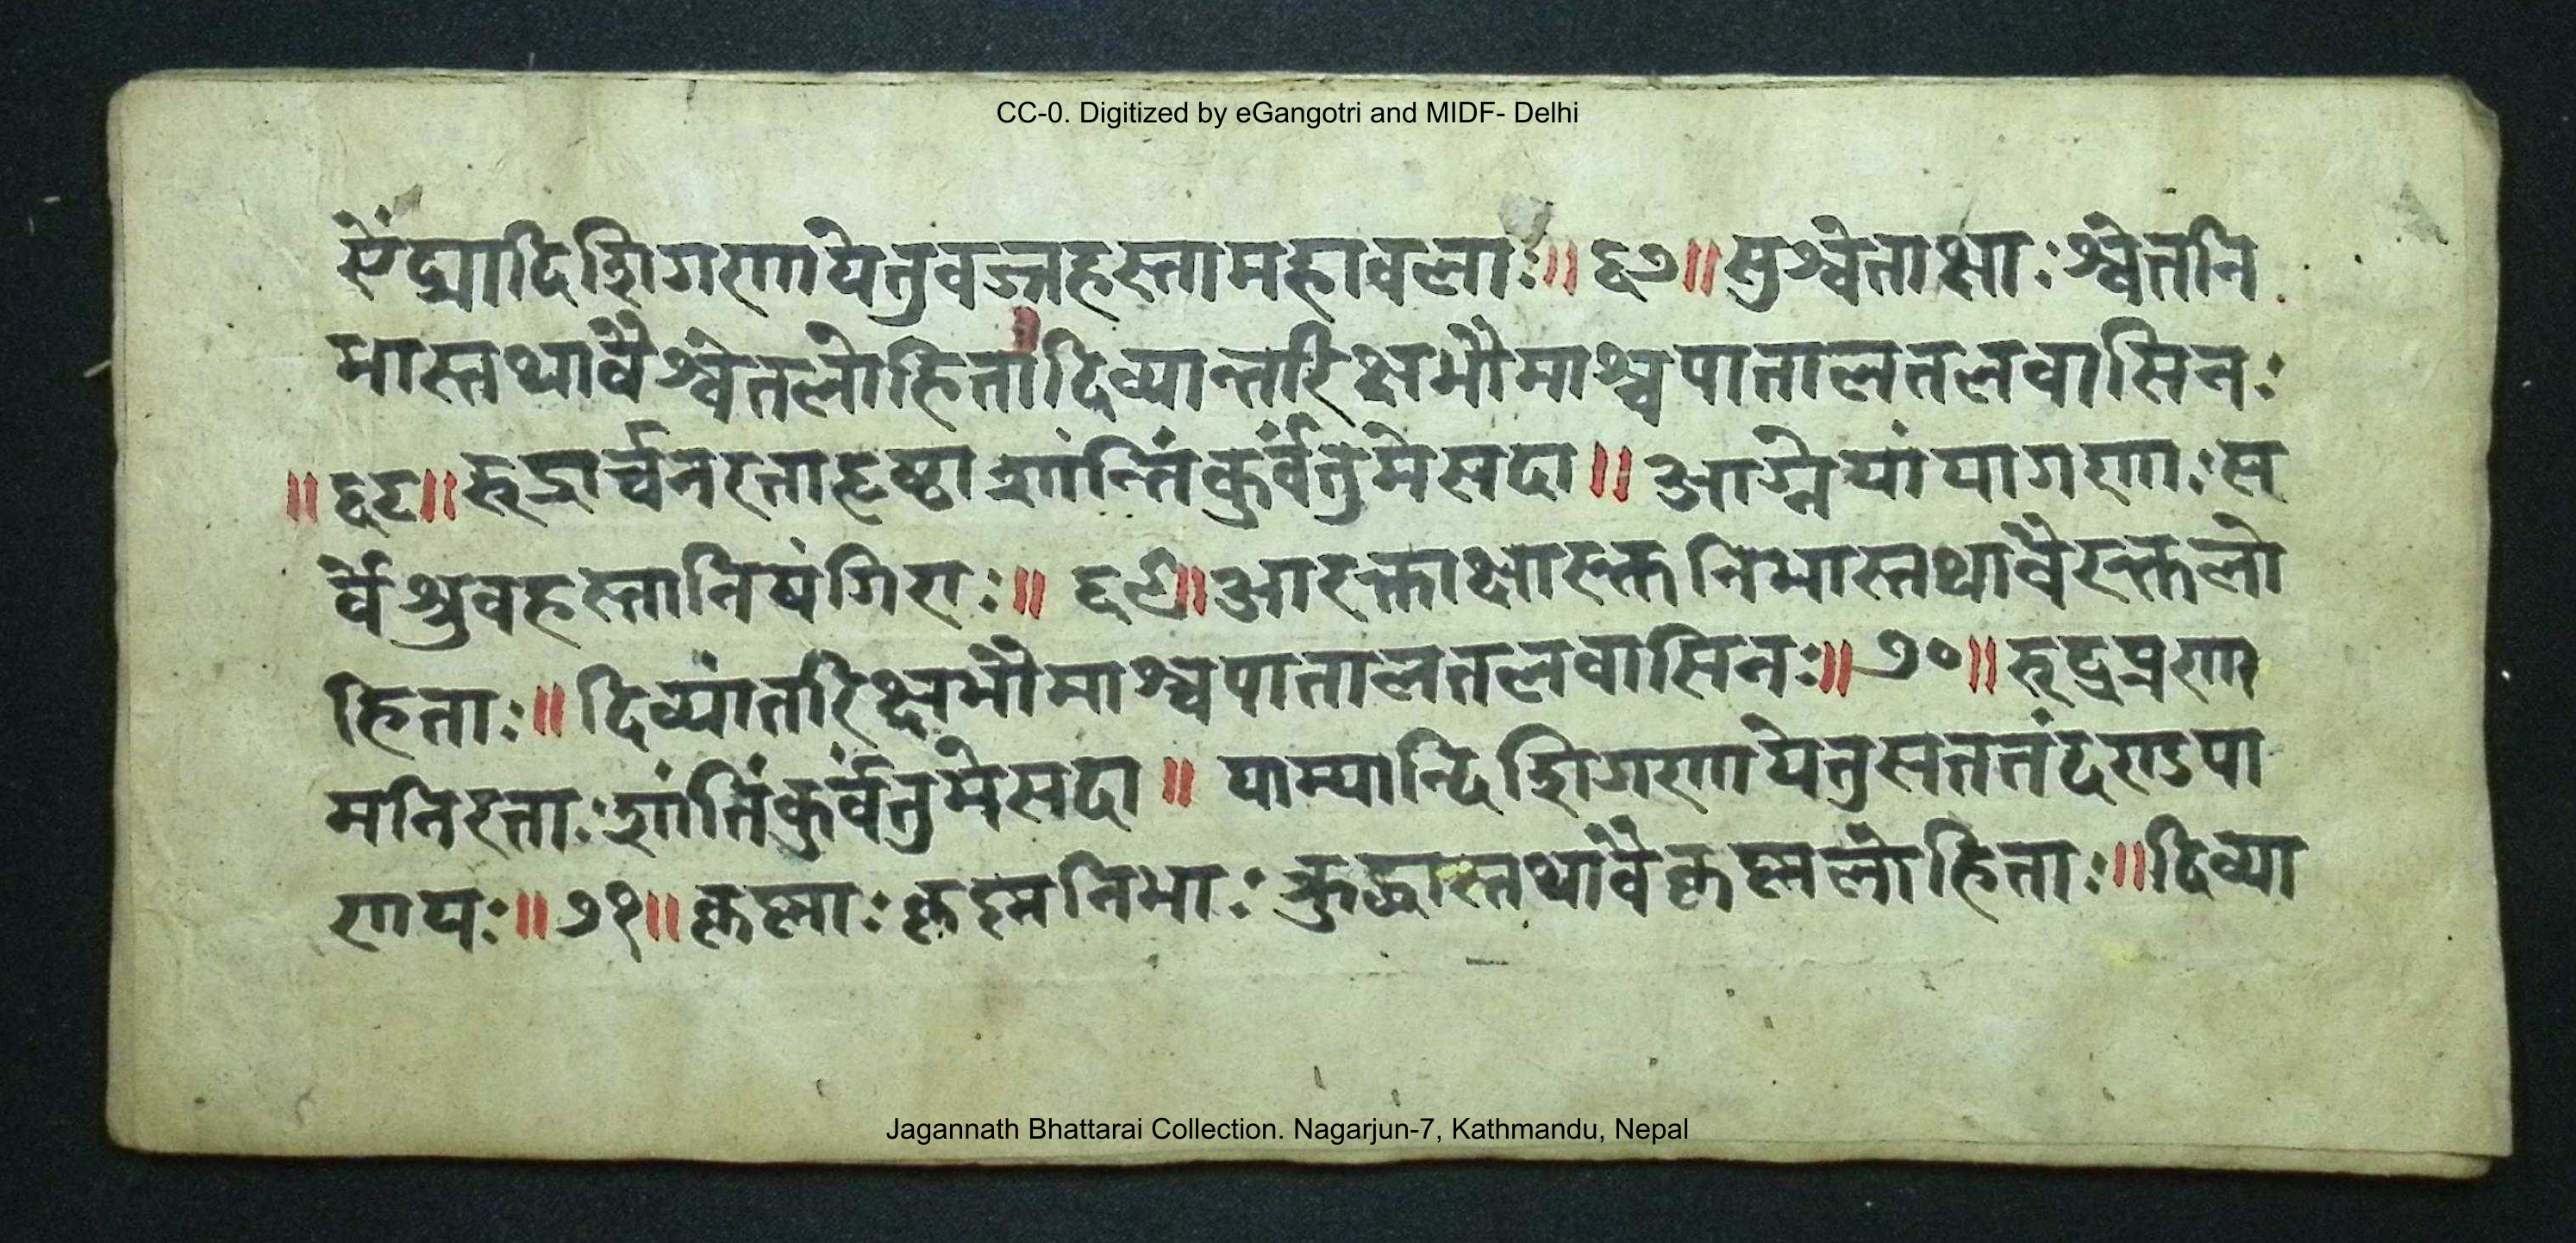 CC-0. Digitized by eGangotri and MIDF- Delhi
ऐंद्यादिशिगणायेतुवज्रहस्तामहावलाः॥६७॥सुश्वेताक्षाःश्वेतनि
भास्तथावैश्वेतलोहिता।दिव्यान्तरिक्षभौमाश्चपातालतलवासिनः
॥६८॥रूद्रार्च्चनरताहृष्ठाशांन्तिंकुर्वंतुमेसदा॥आग्नेयांयागणाःस
र्वेश्रुवहस्तानिषंगिराः॥६९॥आरक्ताक्षारक्तनिभास्तथावैरक्तलो
हिताः॥दिव्यांतरिक्षभौमाश्चपातालतलवासिनः॥७०॥रूद्रप्रणा
मनिरताःशांतिंकुर्वंतुमेसदा॥याम्यान्दिशिगणायेतुसततंदण्डपा
णयः॥७१॥कृष्माःकृष्मनिभाःक्रुद्धास्तथावैकृष्मलोहिताः॥दिव्या
Jagannath Bhattarai Collection. Nagarjun-7, Kathmandu, Nepal